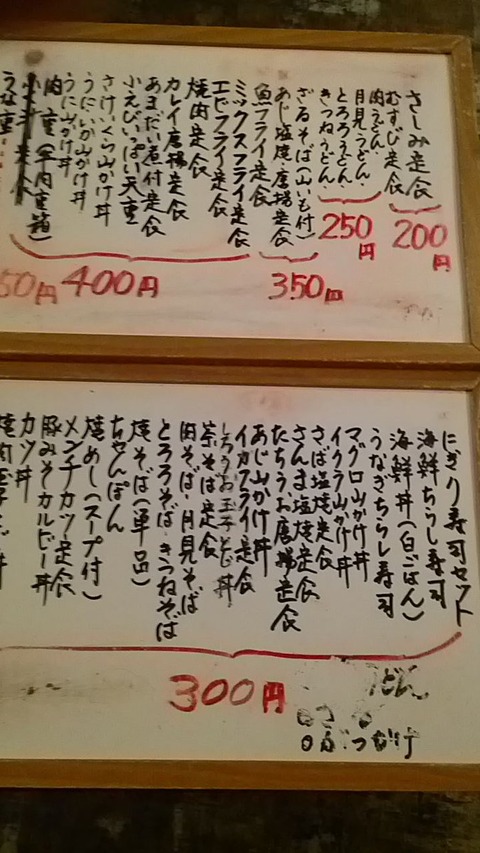 さしみ定食
むすび定食
200円
肉うどん、
月見うどん、
とろろうどん、
きつねうどん、
250円
ざるそば(山いも付)
あじ塩焼・唐揚定食
魚フライ定食
350円
ミックスフライ定食
エビフライ定食
焼肉定食
カレイ唐揚定食
あまだい煮付定食
小えびいっぱい天重
さけいくら山かけ丼
うにいか山かけ丼
うに山かけ丼
肉重(牛肉重箱)
うな重
400円
50円
にぎり寿司セット
海鮮ちらし寿司
海鮮丼(白ごはん)
うなぎちらし寿司
マグロ山かけ丼
イクラ山かけ丼
さば塩焼定食
さんま塩焼定食
たちうお唐揚定食
あじ山かけ丼
イカフライ定食
しろうお玉子とじ丼
茶そば定食
肉そば・月見そば
とろろそば・きつねそば
焼そば(単品)
ちゃんぽん
焼めし(スープ付)
メンチカツ定食
豚みそカルビー丼
カツ丼
300円